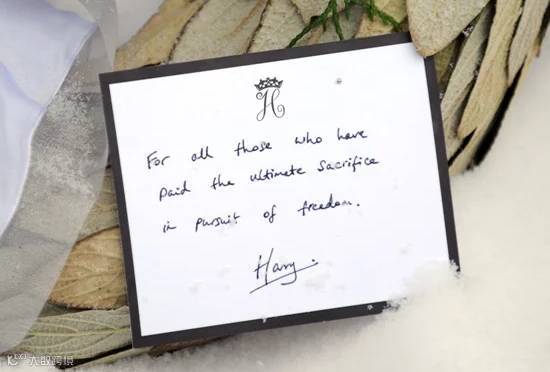 H
For all those who have
paid the ultimate sacrifice
in pursuit of freedom.
Harry.
大数跨境